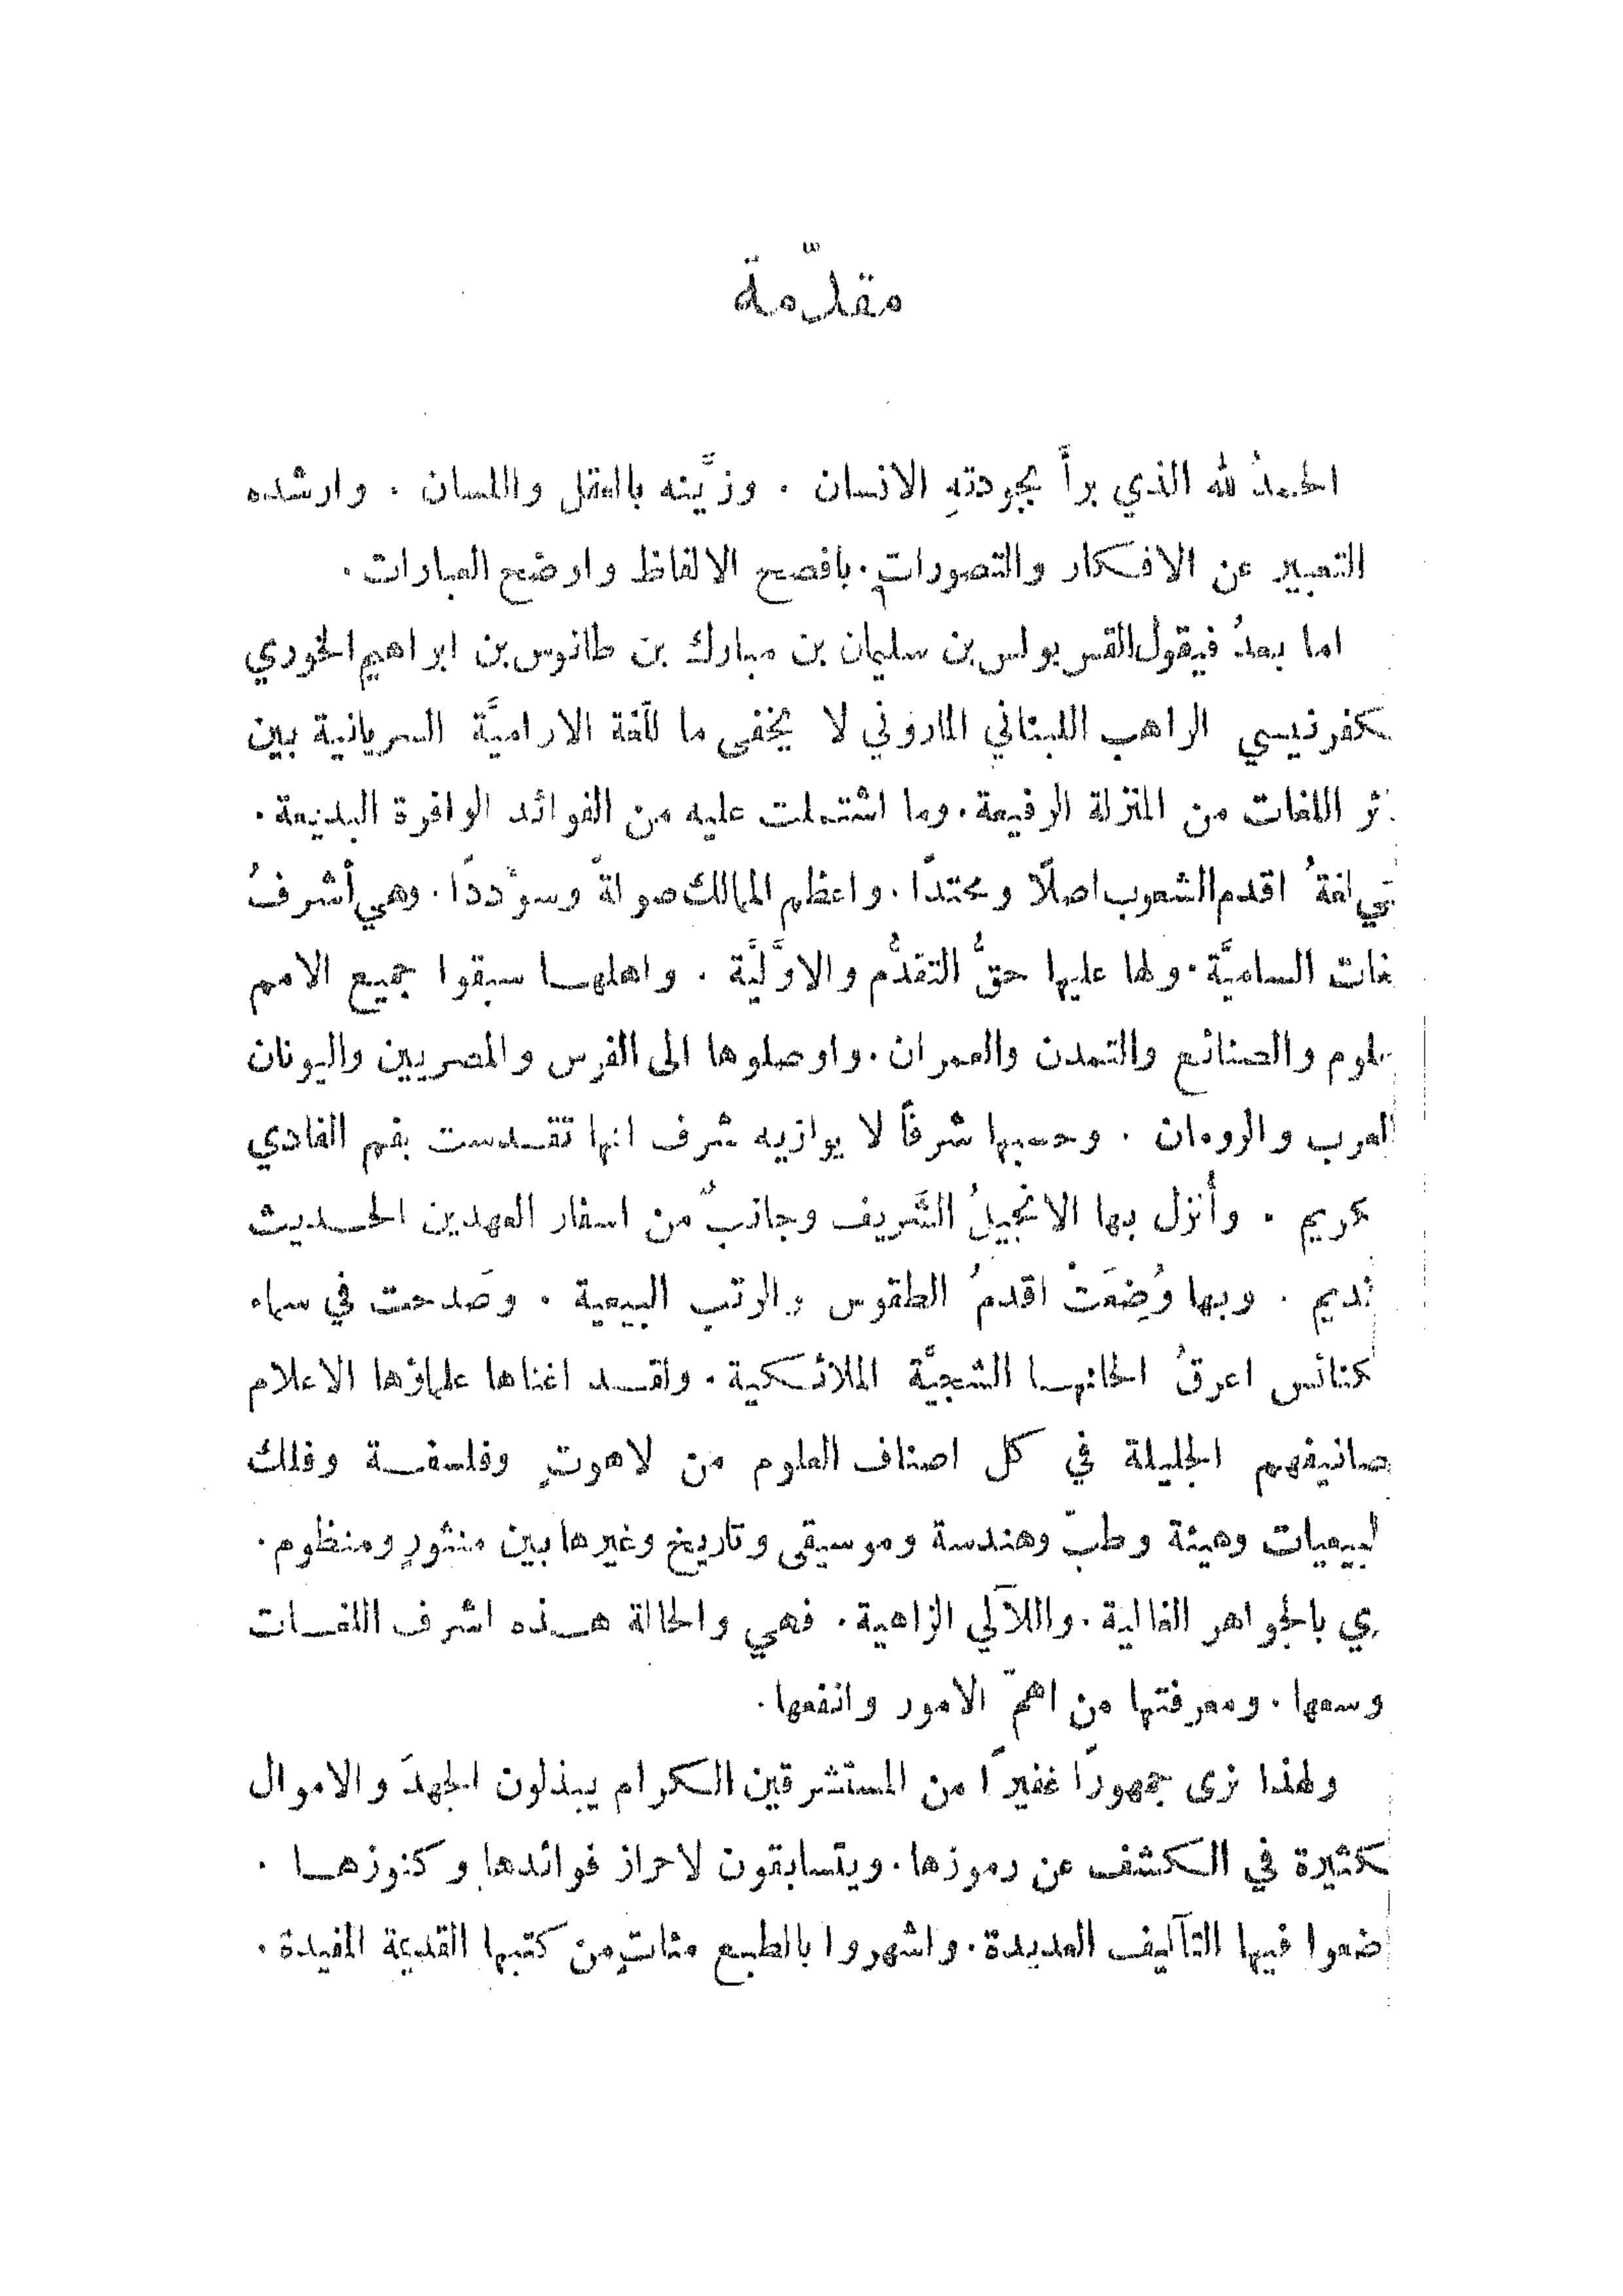 مقدّمة
الحمدُ لله الذي برأَ بجودتهِ الانسان . وزيَّنه بالعقل واللسان . وارشده
التعبير عن الافكار والتصوراتِ . بافصح الالفاظ واوضح العبارات .
اما بعدُ فيقول القس بولس بن سليمان بن مبارك بن طانوس بن ابراهيم الخوري
كفرنيسي الراهب اللبناني الماروني لا يخفى ما للّغة الاراميَّة السريانية بين
ئر اللغات من المنزلة الرفيعة . وما اشتملت عليه من الفوائد الوافرة البديعة .
هي لغةُ اقدم الشعوب اصلًا ومحتدًا . واعظم الممالك صولةً وسوْددًا . وهي أشرفُ
غات الساميَّة . ولها عليها حقُّ التقدُّم والاوَّليَّة . واهلها سبقوا جميع الامم
علوم والصنائع والتمدن والعمران . واوصلوها الى الفرس والمصريين واليونان
العرب والرومان . وحسبها شرفاً لا يوازيه شرف انها تقدست بفم الفادي
كريم . وأُنزل بها الانجيلُ الشَّريف وجانبٌ من اسفار العهدين الحديث
قديم . وبها وُضِعَتْ اقدمُ الطقوس والرتب البيعية . وصَدحت في سماء
كنائس اعرقُ الحانها الشجيَّة الملائكية . ولقد اغناها علماؤها الاعلام
صانيفهم الجليلة في كل اصناف العلوم من لاهوتٍ وفلسفة وفلك
لبيعيات وهيئة وطبّ وهندسة وموسيقى وتاريخ وغيرها بين منثورٍ ومنظوم .
ري بالجواهر الغالية . واللآلي الزاهية . فهي والحالة هذه اشرف اللغات
وسعها . ومعرفتها من اهمّ الامور وانفعها .
ولهذا نرى جمهورًا غفيرًا من المستشرقين الكرام يبذلون الجهدَ والاموال
كثيرة في الكشف عن رموزها . ويتسابقون لاحراز فوائدها وكنوزها .
ضعوا فيها التآليف العديدة . واشهروا بالطبع مئاتٍ من كتبها القديمة المفيدة .